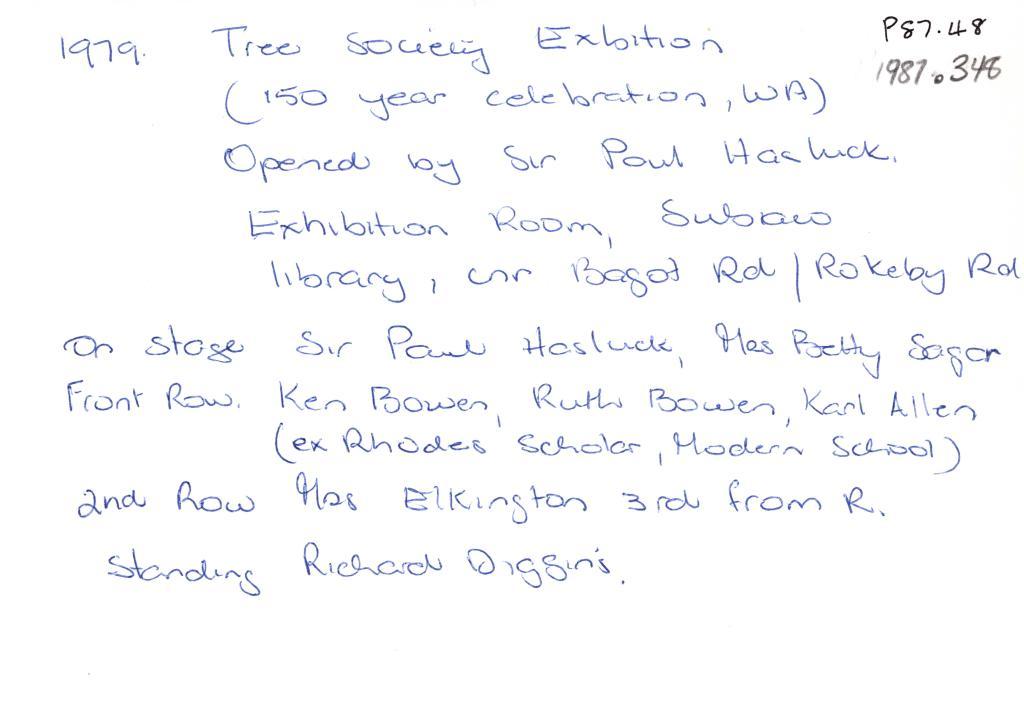 1979. Tree Society Exbition
P87.48
1987.348
(150 year celebration, WA)
Opened by Sir Paul Hasluck.
Exhibition Room, Subiaco
library, cnr Bagot Rd / Rokeby Rd
On stage Sir Paul Hasluck, Mes Betty Sagar
Front Row. Ken Bowen, Ruth Bowen, Karl Allen
(ex Rhodes Scholar, Modern School)
2nd Row Mes Elkington 3rd from R.
Standing Richard Diggins.